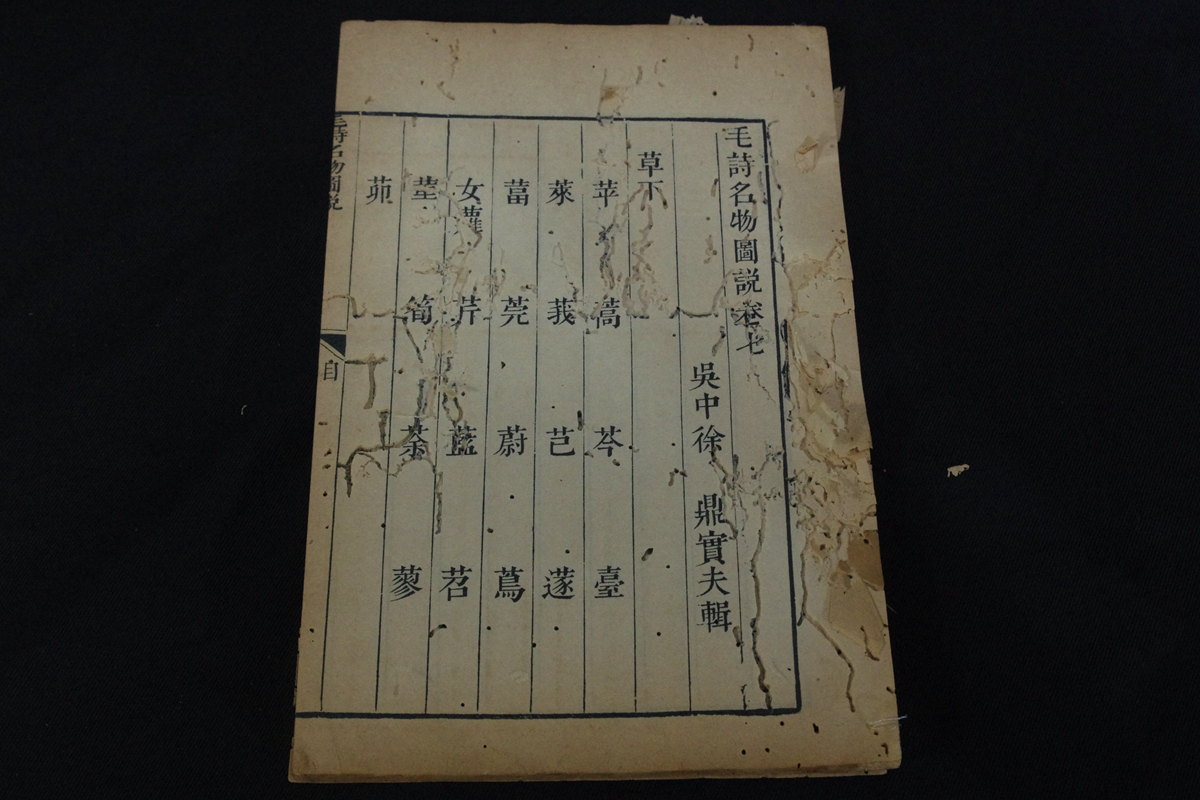 毛詩名物圖説卷七
吳中徐 鼎實夫輯
草下
苹 蒿 芩 臺
萊 莪 芑 蓫
葍 莞 蔚 蔦
女蘿 芹 藍 苕
堇 筍 荼 蓼
茆
毛詩名物圖説
目